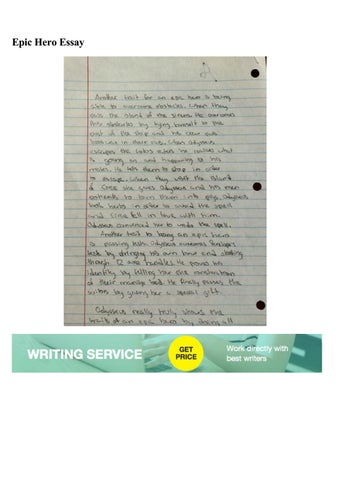 Epic Hero Essay
A
Another trait for an epic hero is being
able to overcome obstacles. When they
pass the island of the sirens. He overcomes
this obstacles by tying himself to the
mast of the ship and his crew puts
in their ears. When Odysseus
escapes the Lotus eaters he realizes what
is going on and happening to his
mates. He tells them to stop in order
to escape. When they visit the island
of Circe she gives Odysseus and his men
to turn them into pigs. Odysseus
took herbs in order to avoid the spell
and Circe fell in love with him.
Odysseus convinced her to undo the spell.
Another trait to being an epic hero
is passing tests. Odysseus overcomes
tests by stringing his own bow and shooting
through 12 axe handles. He proves his
identity by telling her the construction
of their marriage bed. He finally passes the
by giving her a special gift.
Odysseus really truly shows the
traits of an epic hero by doing all
WRITING SERVICE
GET
PRICE
Work directly with
best writers